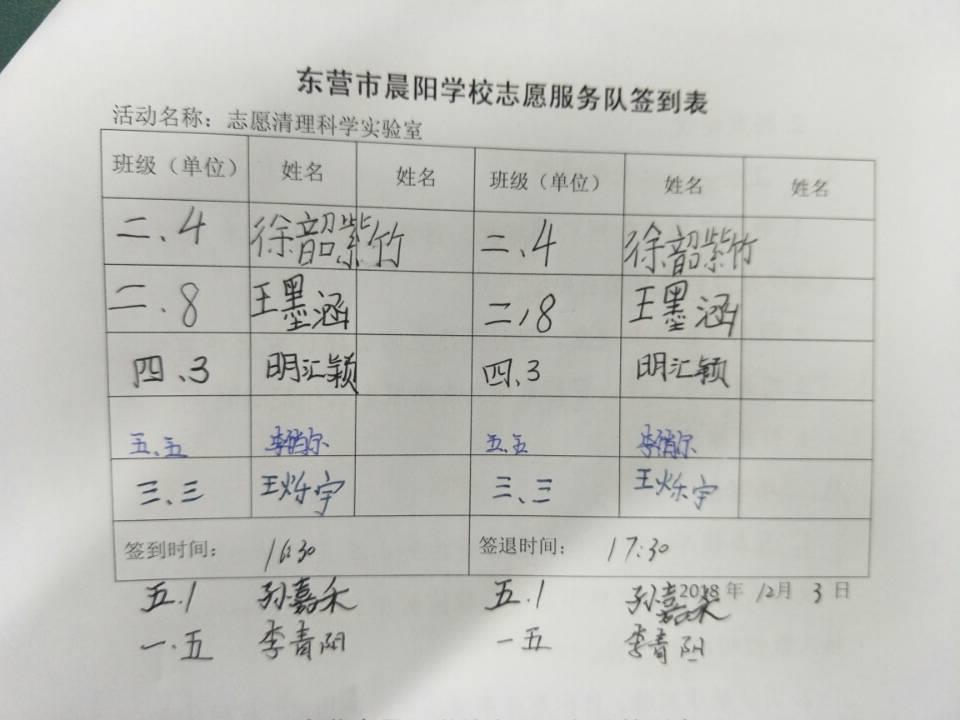 东营市晨阳学校志愿服务队签到表
活动名称：志愿清理科学实验室
班级（单位） 姓名 姓名 班级（单位） 姓名 姓名
二、4 徐韶紫竹 二、4 徐韶紫竹
二.8 王墨涵 二,8 王墨涵
四、3 明汇颖 四、3 明汇颖
五、五 五.五
三、三 王烁宇 三、三 王烁宇
签到时间： 16:30 签退时间： 17:30
2018年 12月 3 日
五.1 孙嘉禾 五.1 孙嘉禾
一.五 李青阳 一五 李青阳